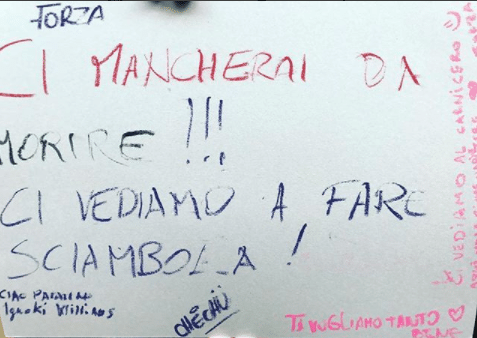 FORZA
CI MANCHERAI DA
MORIRE !!!
CI VEDIAMO A FARE
SCIAMBOLA !
CIAO
Ignoki Williams
CHÈCCHÙ
TI VOGLIAMO TANTO
BENE
CI VEDIAMO AL CARNICERO